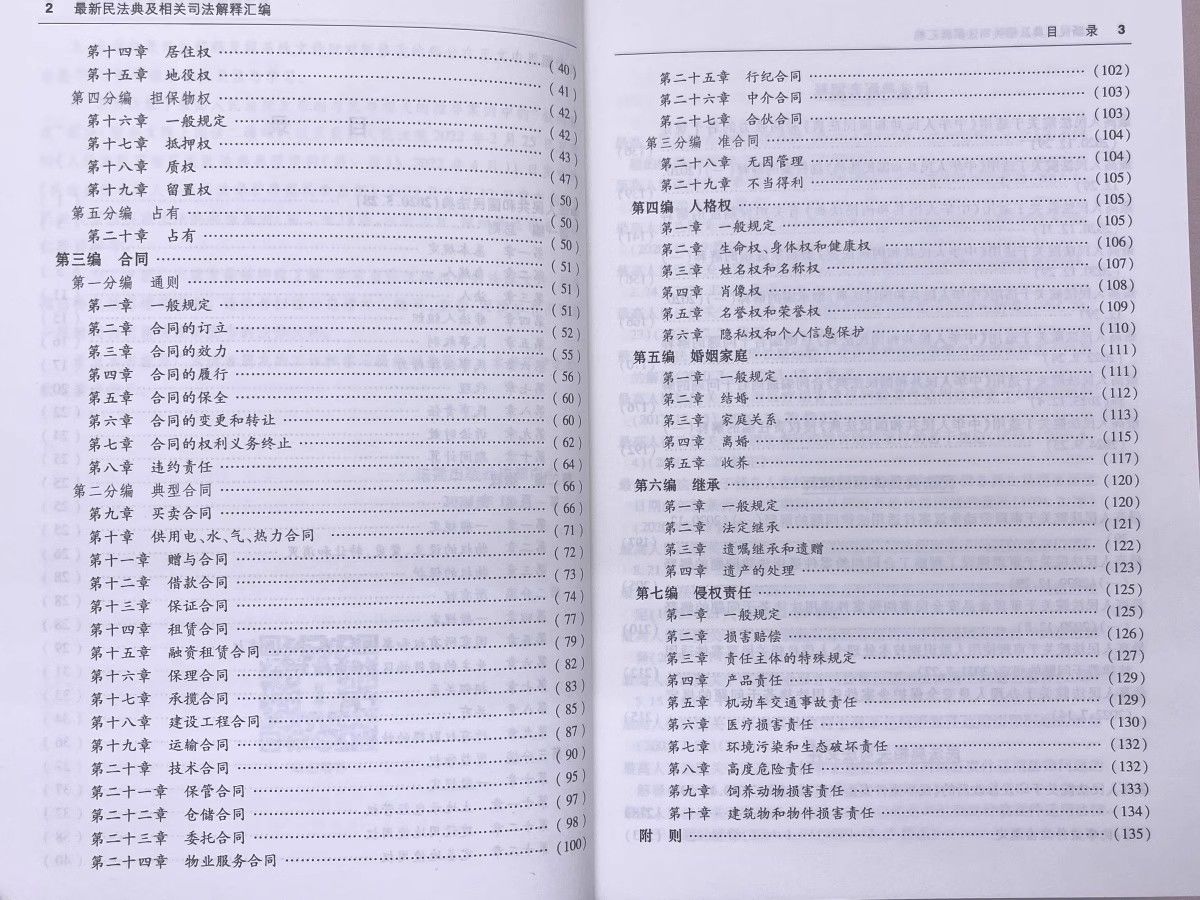 2 最新民法典及相关司法解释汇编
第十四章 居住权 ………… (40)
第十五章 地役权 ………… (41)
第四分编 担保物权 ………… (42)
第十六章 一般规定 ………… (42)
第十七章 抵押权 ………… (43)
第十八章 质权 ………… (47)
第十九章 留置权 ………… (50)
第五分编 占有 ………… (50)
第二十章 占有 ………… (50)
第三编 合同 ………… (51)
第一分编 通则 ………… (51)
第一章 一般规定 ………… (51)
第二章 合同的订立 ………… (52)
第三章 合同的效力 ………… (55)
第四章 合同的履行 ………… (56)
第五章 合同的保全 ………… (60)
第六章 合同的变更和转让 ………… (60)
第七章 合同的权利义务终止 ………… (62)
第八章 违约责任 ………… (64)
第二分编 典型合同 ………… (66)
第九章 买卖合同 ………… (66)
第十章 供用电、水、气、热力合同 ………… (71)
第十一章 赠与合同 ………… (72)
第十二章 借款合同 ………… (73)
第十三章 保证合同 ………… (74)
第十四章 租赁合同 ………… (77)
第十五章 融资租赁合同 ………… (79)
第十六章 保理合同 ………… (82)
第十七章 承揽合同 ………… (83)
第十八章 建设工程合同 ………… (85)
第十九章 运输合同 ………… (87)
第二十章 技术合同 ………… (90)
第二十一章 保管合同 ………… (95)
第二十二章 仓储合同 ………… (97)
第二十三章 委托合同 ………… (98)
第二十四章 物业服务合同 ………… (100)
目 录 3
第二十五章 行纪合同 ………… (102)
第二十六章 中介合同 ………… (103)
第二十七章 合伙合同 ………… (103)
第三分编 准合同 ………… (104)
第二十八章 无因管理 ………… (104)
第二十九章 不当得利 ………… (105)
第四编 人格权 ………… (105)
第一章 一般规定 ………… (105)
第二章 生命权、身体权和健康权 ………… (106)
第三章 姓名权和名称权 ………… (107)
第四章 肖像权 ………… (108)
第五章 名誉权和荣誉权 ………… (109)
第六章 隐私权和个人信息保护 ………… (110)
第五编 婚姻家庭 ………… (111)
第一章 一般规定 ………… (111)
第二章 结婚 ………… (112)
第三章 家庭关系 ………… (113)
第四章 离婚 ………… (115)
第五章 收养 ………… (117)
第六编 继承 ………… (120)
第一章 一般规定 ………… (120)
第二章 法定继承 ………… (121)
第三章 遗嘱继承和遗赠 ………… (122)
第四章 遗产的处理 ………… (123)
第七编 侵权责任 ………… (125)
第一章 一般规定 ………… (125)
第二章 损害赔偿 ………… (126)
第三章 责任主体的特殊规定 ………… (127)
第四章 产品责任 ………… (129)
第五章 机动车交通事故责任 ………… (129)
第六章 医疗损害责任 ………… (130)
第七章 环境污染和生态破坏责任 ………… (132)
第八章 高度危险责任 ………… (132)
第九章 饲养动物损害责任 ………… (133)
第十章 建筑物和物件损害责任 ………… (134)
附 则 ………… (135)